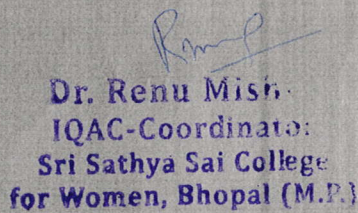 Dr. Renu Mish
IQAC-Coordinator
Sri Sathya Sai College
for Women, Bhopal (M.P.)